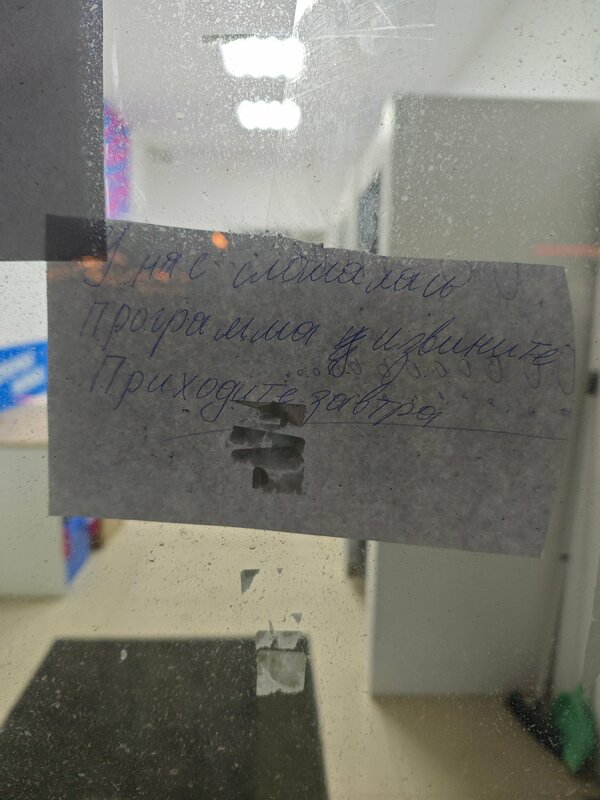 У нас сломалась
программа извините
Приходите завтра